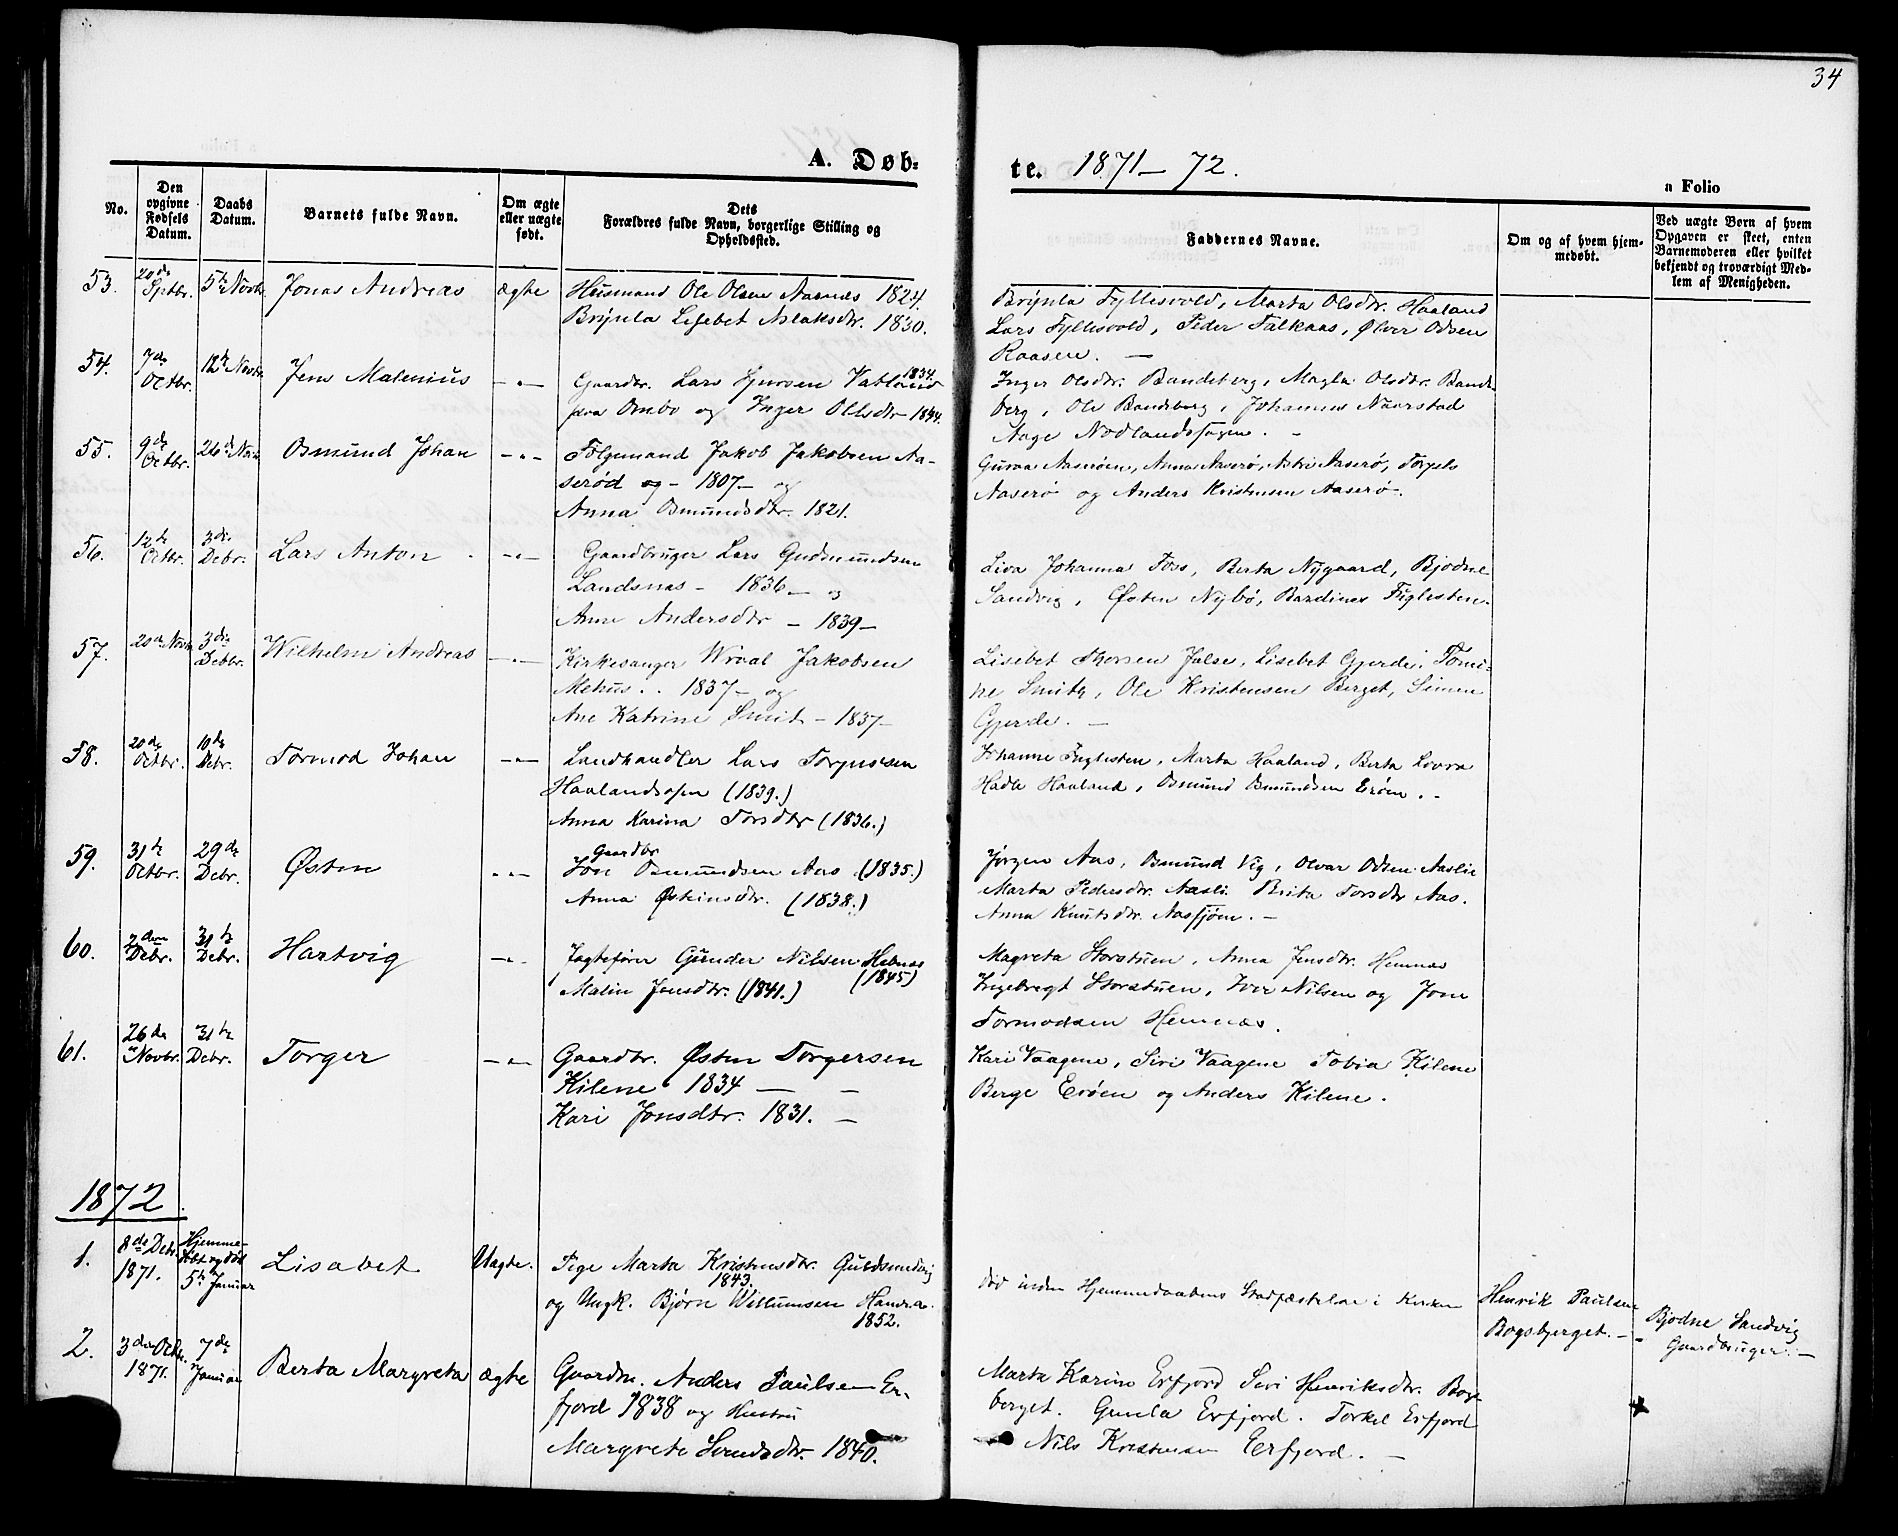 34
A. Døb-
te. 1871 - 72.
a Folio
No.
Den opgivne Fødsels Datum.
Daabs Datum.
Barnets fulde Navn.
Om ægte eller uægte født.
Dets Forældres fulde Navn, borgerlige Stilling og Opholdssted.
Faddernes Navne.
Om og af hvem hjemmedøbt.
Ved uægte Børn af hvem Opgaven er skeet, enten Barnemoderen eller hvilket bekjendt og troværdigt Medlem af Menigheden.
53. 20de Sptbr. 5te Novbr. Jonas Andreas ægte Husmand Ole Olsen Aasnæs 1824.
Brynla Lisebet Aslaksdtr. 1830.
Brynla Fyllesvold, Marta Olsdtr. Haaland
Lars Fyllesvold, Peder Falkaas, Ølver Odsen
Raasen. -
54. 7de Octbr. 12te Novbr. Jens Malenius - " - Gaardbr. Lars Sjursen Vatland 1834.
paa Ombo og Inger Olsdtr 1844.
Inger Olsdtr. Bandeberg, Magla Olsdtr. Bande-
berg, Ole Bandeberg, Johannes Naarstad
Aage Nodlandssagen. -
55. 9de Octbr. 26de Novbr. Osmund Johan - " - Følgemand Jakob Jakobsen Aa-
serød og - 1807 - og
Anna Osmundsdtr. 1821.
Guroa Aaserøen, Anna Aaserø, Astri Aaserø, Torgils
Aaserø og Anders Kristensen Aaserø.
56. 12te Octbr. 3die Debr. Lars Anton - " - Gaardbruger Lars Gudmundsen
Landsnæs - 1836 - og
Anne Andersdtr - 1839 -
Liva Johanna Foss, Berta Nygaard, Bjodne
Sandvig, Østen Nybø, Bardines Figlesten.
57. 20de Novbr. 3die Debbr. Wilhelm Andreas - " - Kirkesanger Wraal Jakobsen
Mehus. . 1837 - og
Ane Katrine Smit - 1837 -
Lisebet Thorsen Jalse, Lisebet Gjerde, Tomi-
ne Smith, Ole Kristensen Berget, Simen
Gjerde. -
58. 20de Octbr. 10de Debr. Tormod Johan - " - Landhandler Lars Torgersen
Haalandsosen (1839.)
Anna Karina Torsdtr (1836.)
Johanne Figlesten, Marta Haaland, Berta Lovra
Hadle Haaland, Osmund Osmundsen Erøen. -
59. 31te Octbr. 29de Debr. Østen " - " Gaardbr
Jon Osmundsen Aas (1835.)
Anna Østeinsdtr. (1838.)
Jørgen Aas, Osmund Vig, Olvar Odsen Aaslie
Marta Pedersdtr. Aasli. Brita Torsdtr Aas.
Anna Knutsdtr. Aasfjøen. -
60. 2den Debr. 31te Debr. Hartvig - " - Jagtefører Gunder Nilsen Hebnes
(1845)
Malin Jonsdtr. (1841.)
Magreta Storstuen, Anna Jensdtr. Hemnæs
Ingebregt Storstuen, Iver Nilsen og Jone
Tormodsen Hemnæs.
61. 26de Novbr. 31te Debr. Torger - " - Gaardbr. Østen Torgersen
Kilene 1834 -
Kari Jonsdtr. 1831. -
Kari Vaagene, Siri Vaagene Tobia Kilene
Berge Erøen og Anders Kilene.
1872.
1. 8de Debr. 1871. Hjemmedøbt og død 5te Januar Lisabet Uægte. Pige Marta Kristensdtr. Guldsmedvig
1843.
og Ungk. Bjørn Willumsen Handea.
1852.
død inden Hjemmedaabens Stadfæstelse i Kirken
Henrik Paulsen
Bogsbjerget. -
Bjodne Sandvig
Gaardbruger. -
2. 3die Octbr. 1871. 7de Januar Berta Margreta ægte Gaardm. Anders Paulsen Er-
fjord 1838 og Hustru
Margrete Svendsdtr. 1840.
Marta Karine Erfjord Siri Henriksdtr. Bogs-
berget. Gunla Erfjord. Torkel Erfjord
Nils Kristensen Eerfjord. -